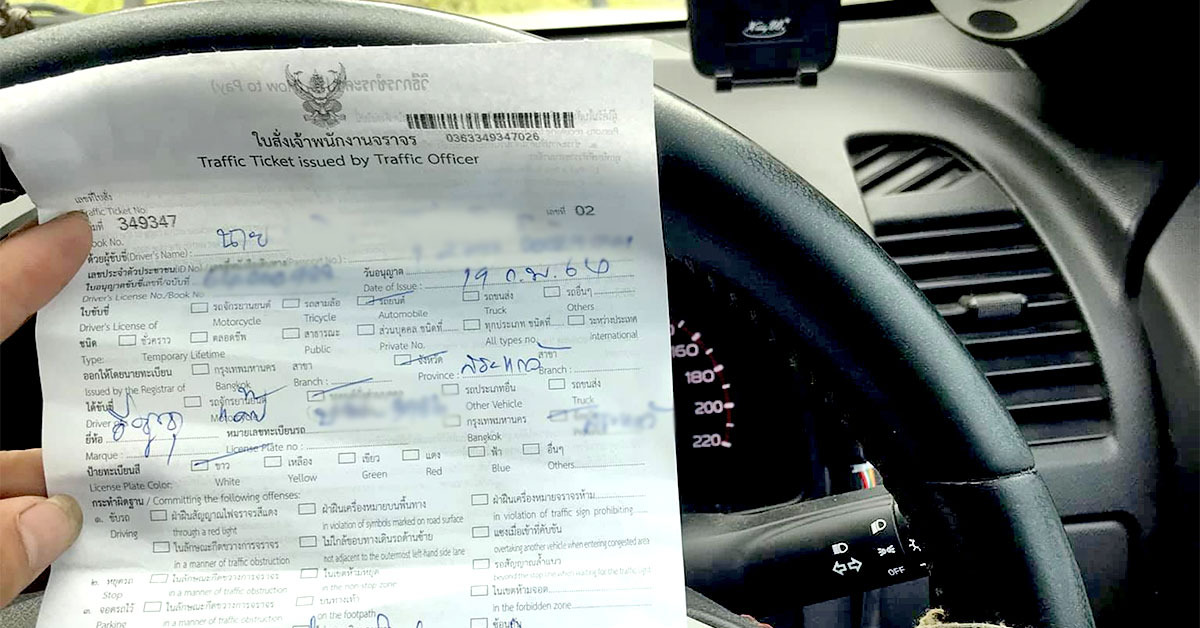 วิธีการชำระ (How to Pay)
0363349347026
ใบสั่งเจ้าพนักงานจราจร
Traffic Ticket issued by Traffic Officer
เลขที่ใบสั่ง
Traffic Ticket No.
349347 เลขที่ 02
Book No.
ด้วยผู้ขับขี่(Driver's Name) : นาย
เลขประจำตัวประชาชน(ID No)
ใบอนุญาตขับขี่เลขที่/ฉบับที่ วันอนุญาต 19 ก.พ. 64
Driver's License No./Book No Date of Issue :
ใบขับขี่ รถจักรยานยนต์ รถสามล้อ รถยนต์ รถขนส่ง รถอื่นๆ
Driver's License of Motorcycle Tricycle Automobile Truck Others
ชนิด ชั่วคราว ตลอดชีพ สาธารณะ ส่วนบุคคล ชนิดที่ ทุกประเภท ชนิดที่ ระหว่างประเทศ
Type: Temporary Lifetime Public Private No. All types no. international
ออกให้โดยนายทะเบียน กรุงเทพมหานคร สาขา จังหวัด สระแก้ว สาขา
Issued by the Registrar of Bangkok Branch : Province : Branch :
ได้ขับขี่ รถจักรยานยนต์ รถประเภทอื่น รถขนส่ง
Driver Other Vehicle Truck
ยี่ห้อ หมายเลขทะเบียนรถ กรุงเทพมหานคร
Marque : License Plate no : Bangkok
ป้ายทะเบียนสี ขาว เหลือง เขียว แดง ฟ้า อื่นๆ
License Plate Color: White Yellow Green Red Blue Others
กระทำผิดฐาน / Committing the following offenses:
๑. ขับรถ ฝ่าฝืนสัญญาณไฟจราจรสีแดง ฝ่าฝืนเครื่องหมายบนพื้นทาง ฝ่าฝืนเครื่องหมายจราจรห้าม
Driving through a red light in violation of symbols marked on road surface in violation of traffic sign prohibiting
ในลักษณะกีดขวางการจราจร ไม่ใกล้ขอบทางเดินรถด้านซ้าย แซงเมื่อเข้าที่คับขัน
in a manner of traffic obstruction not adjacent to the outermost left-hand side lane overtaking another vehicle when entering congested area
๒. หยุดรถ ในลักษณะกีดขวางการจราจร ในเขตห้ามหยุด รอสัญญาณล้ำแนว
Stop in a manner of traffic obstruction in the non stop zone beyond the stop line when waiting for the traffic light
๓. จอดรถไว้ ในลักษณะกีดขวางการจราจร บนทางเท้า ในเขตห้ามจอด
Parking in a manner of traffic obstruction on the footpath in the forbidden zone
ซ้อนคัน
160
180
200
220
OFF